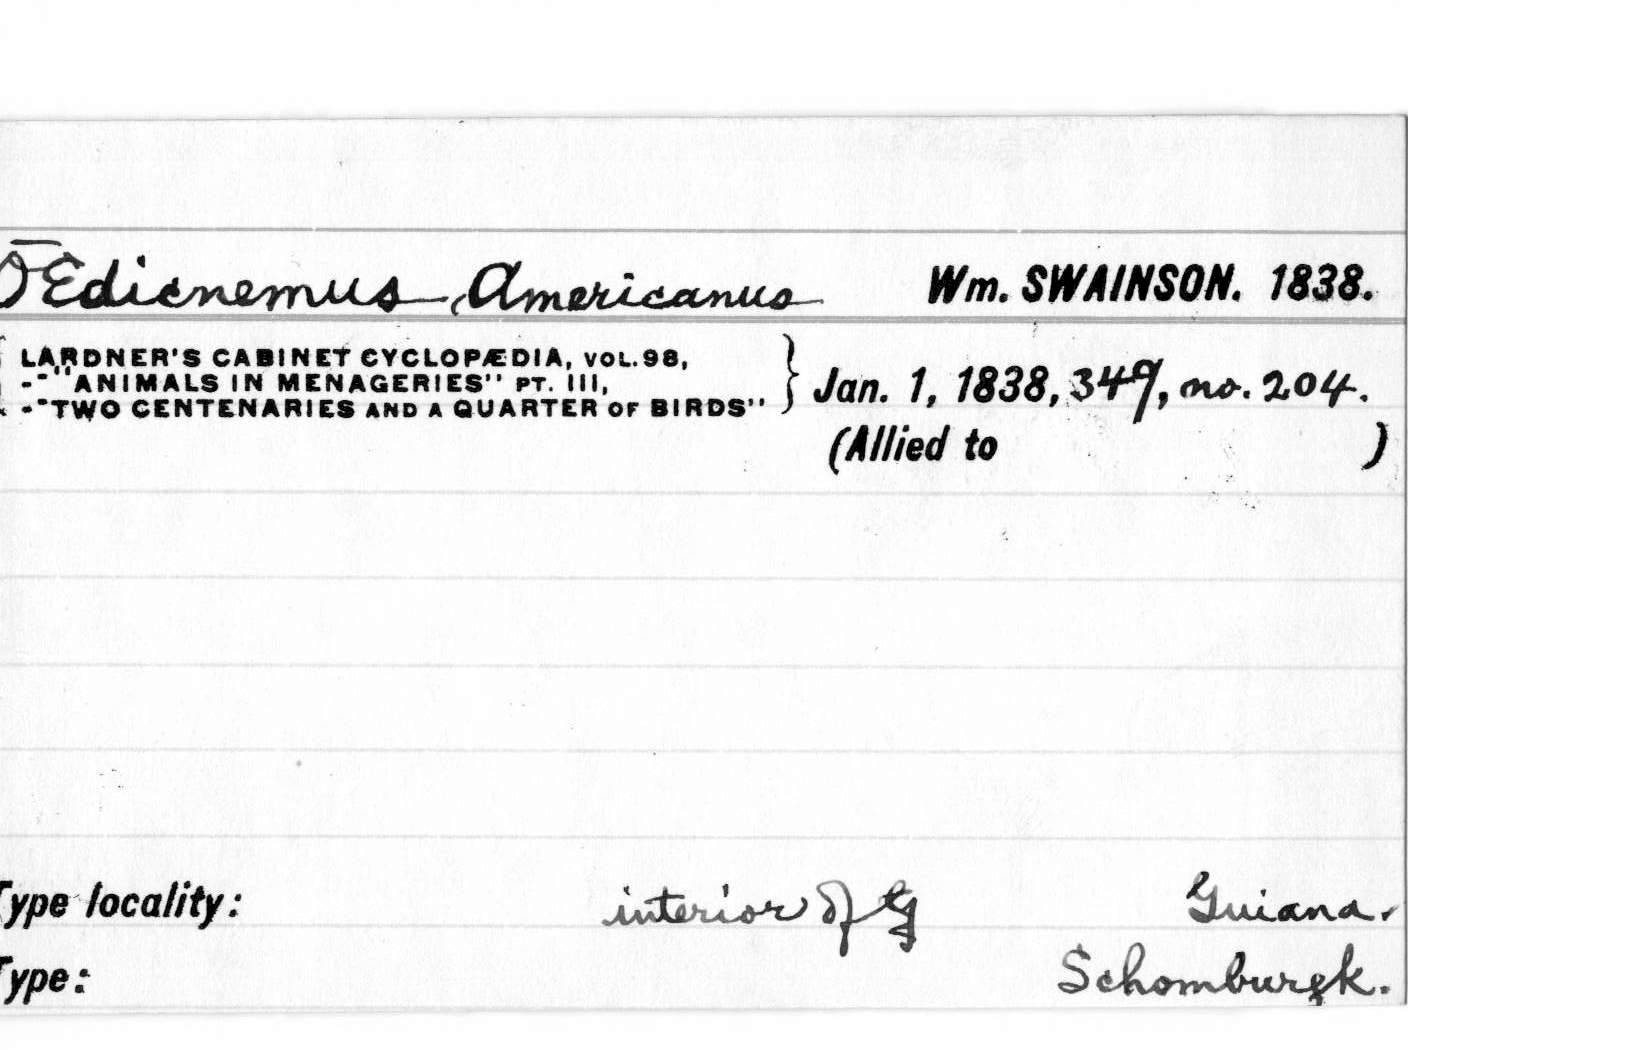 ŒEdicnemus Americanus Wm. SWAINSON. 1838.
LARDNER'S CABINET CYCLOPÆDIA, VOL.98,
-- "ANIMALS IN MENAGERIES" PT. III,
-- "TWO CENTENARIES AND A QUARTER OF BIRDS"
Jan. 1, 1838, 349, no. 204.
(Allied to )
Type locality: interior of G Guiana.
Type: Schomburgk.